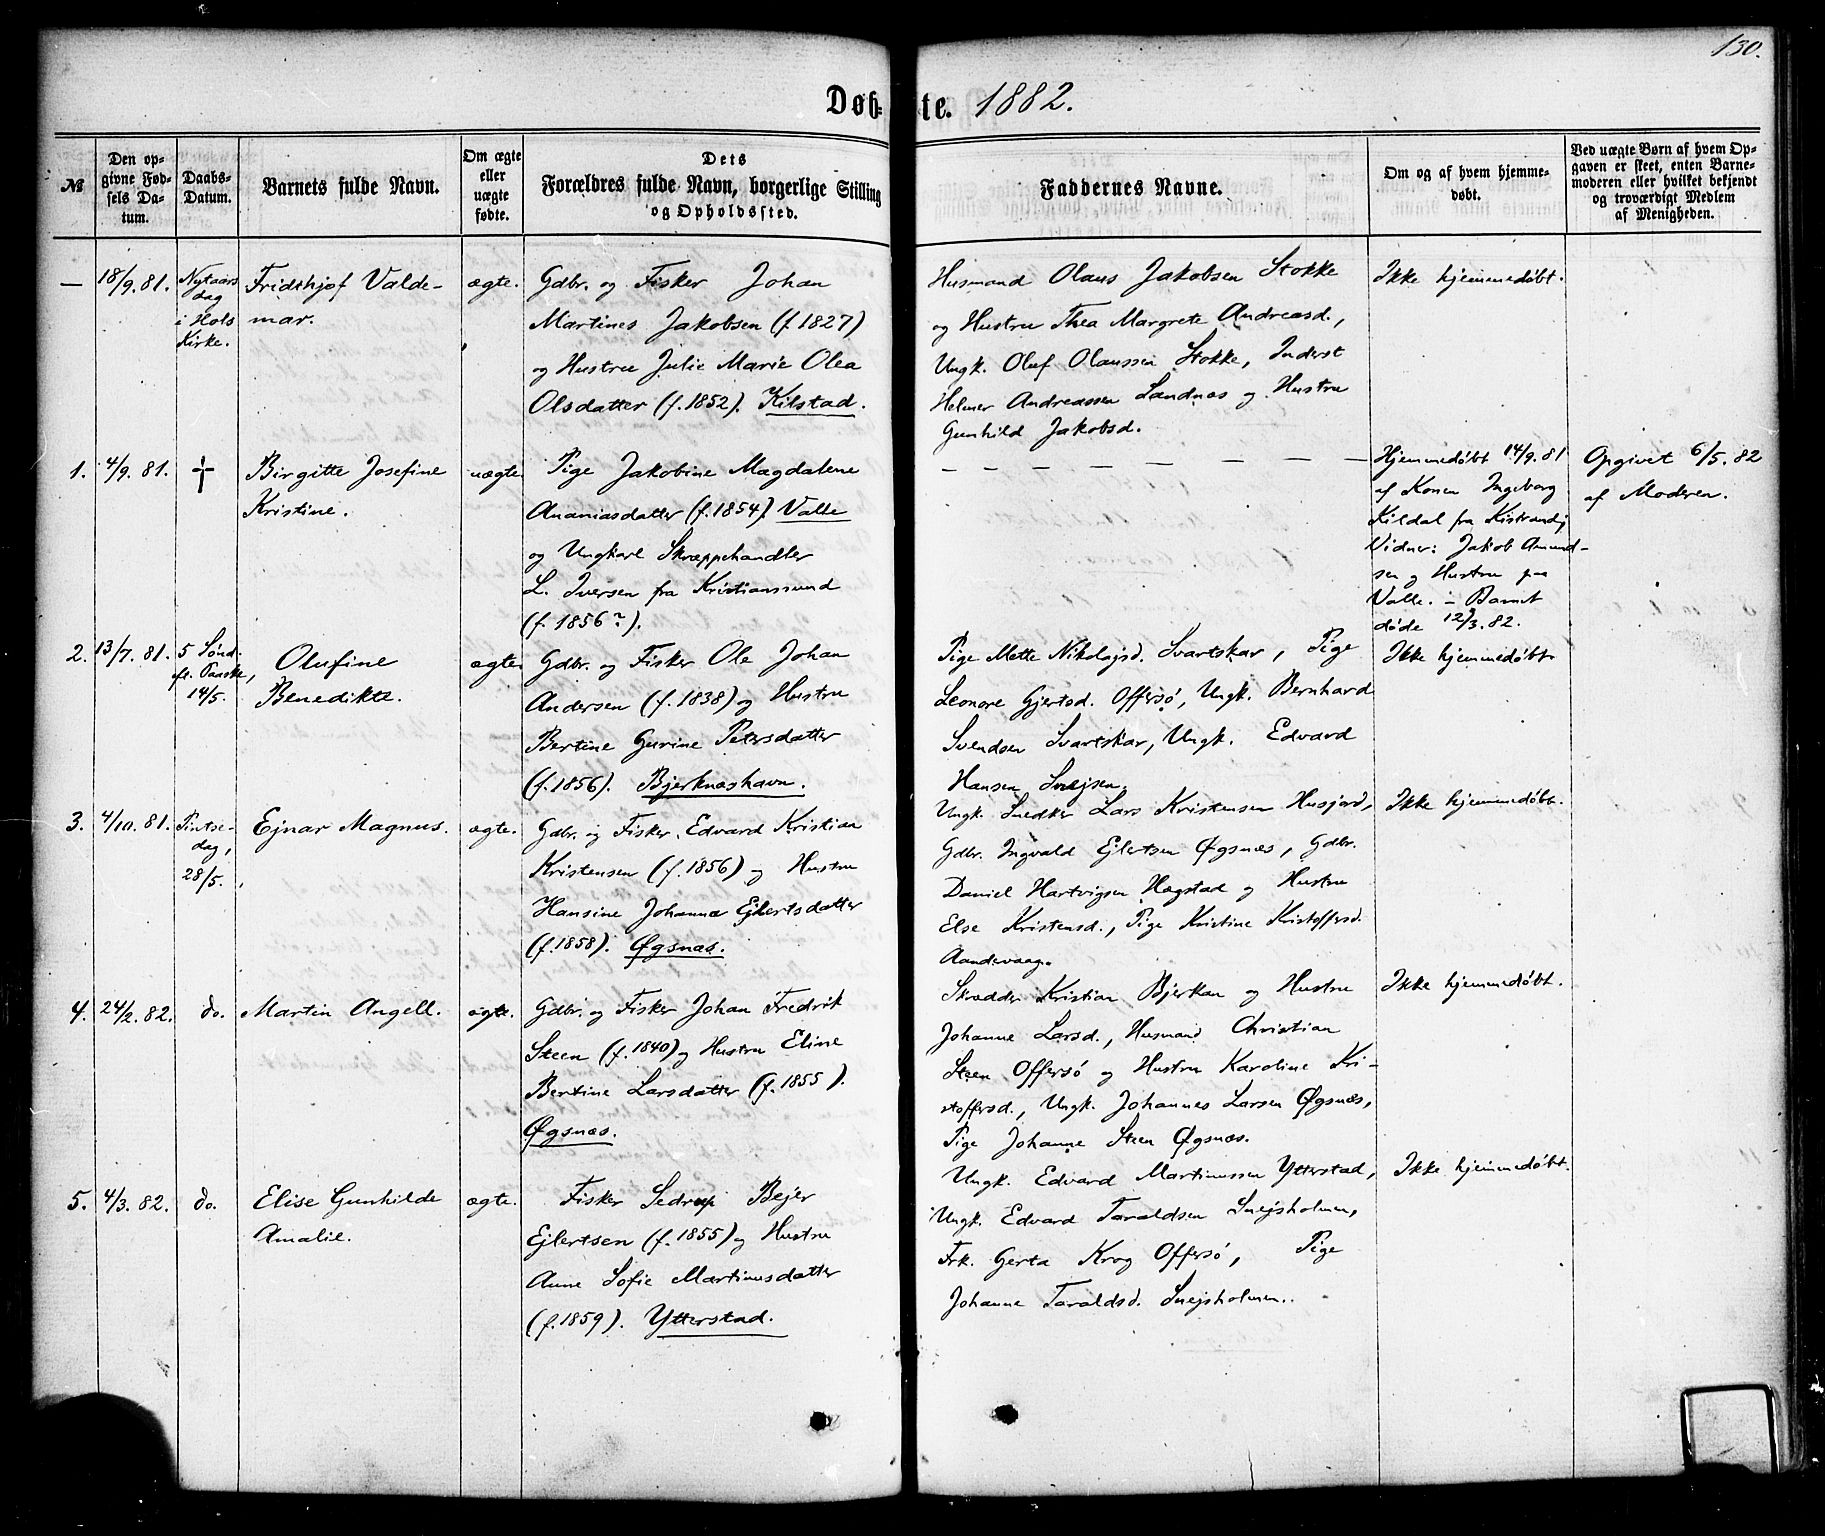 130.
Døb- te. 1882.
№
Den op-
givne Fød-
sels Da-
tum.
Daabs-
Datum.
Barnets fulde Navn.
Om ægte
eller
uægte
fødte.
Dets
Forældres fulde Navn, borgerlige Stilling
og Opholdssted.
Faddernes Navne.
Om og af hvem hjemme-
døbt.
Ved uægte Børn af hvem Op-
gaven er skeet, enten Barne-
moderen eller hvilket bekjendt
og troværdigt Medlem
af Menigheden.
—
18/9. 81.
Nytaars
dag
i Hols
Kirke.
Fridthjof Valde-
mar.
ægte.
Gdbr. og Fisker Johan
Martines Jakobsen (f. 1827)
og Hustru Julie Marie Olea
Olsdatter (f. 1852). Kilstad.
Husmand Olaus Jakobsen Stokke
og Hustru Thea Margrete Andreasd.,
Ungk. Oluf Olaussen Stokke, Inderst
Helmer Andreassen Sandnæs og Hustru
Gunhild Jakobsd.
Ikke hjemmedøbt.
1.
4/9. 81.
†
Birgitte Josefine
Kristine.
uægte
Pige Jakobine Magdalene
Ananiasdatter (f. 1854). Valle
og Ungkarl Skræppehandler
L. Iversen fra Kristianssund
(f. 1856?).
— — — — — — — — — —
Hjemmedøbt 14/9. 81
af Konen Ingeborg
Kildal fra Kistrand;
Vidner: Jakob Amund-
sen og Hustru paa
Valle. — Barnet
døde 12/3. 82.
Opgivet 6/5. 82
af Moderen.
2.
13/7. 81.
5 Sønd.
ef. Paaske,
14/5.
Olufine
Benedikte.
ægte.
Gdbr. og Fisker Ole Johan
Andersen (f. 1838) og Hustru
Bertine Gurine Petersdatter
(f. 1856). Bjerknæshavn.
Pige Mette Nikolajsd. Svartskar, Pige
Leonore Gjertsd. Offersø, Ungk. Bernhard
Svendsen Svartskar, Ungk. Edvard
Hansen Snejsen.
Ikke hjemmedøbt.
3.
4/10. 81.
Pintse-
dag,
28/5.
Ejnar Magnus.
ægte.
Gdbr. og Fisker Edvard Kristian
Kristensen (f. 1856) og Hustru
Hansine Johanna Ejlertsdatter
(f. 1858). Øgsnæs.
Ungk. Snedker Lars Kristensen Husjord,
Gdbr. Ingvald Ejlertsen Øgsnæs, Gdbr.
Daniel Hartvigsen Hægstad og Hustru
Else Kristensd., Pige Kristine Kristoffersd.
Aandevaag.
Ikke hjemmedøbt.
4.
24/2. 82.
do.
Martin Angell.
ægte.
Gdbr. og Fisker Johan Fredrik
Steen (f. 1840) og Hustru Eline
Bertine Larsdatter (f. 1855).
Øgsnæs.
Skrædder Kristian Bjerkan og Hustru
Johanne Larsd., Husmand Christian
Steen Offersø og Hustru Karoline Kri-
stoffersd., Ungk. Johannes Larsen Øgsnæs,
Pige Johanne Steen Øgsnæs.
Ikke hjemmedøbt.
5.
4/3. 82.
do.
Elise Gunhilde
Amalie.
ægte.
Fisker Sedrup Bejer
Ejlertsen (f. 1855) og Hustru
Anne Sofie Martinusdatter
(f. 1859). Ytterstad.
Ungk. Edvard Martinussen Ytterstad,
Ungk. Edvard Taraldsen Snejsholmen,
Frk. Gerta Krog Offersø, Pige
Johanne Taraldsd. Snejsholmen.
Ikke hjemmedøbt.